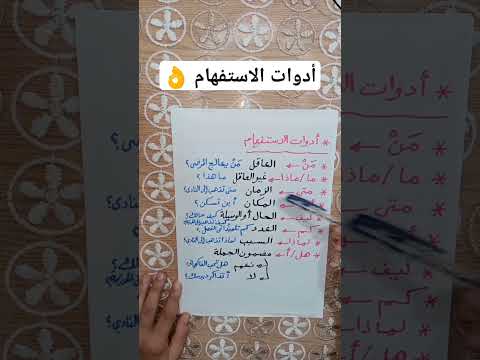 أدوات الاستفهام 👌
* أدوات الاستفهام
* مَنْ ← العاقل مَنْ يعالج المرضى؟
* ما/ماذا ← غير العاقل ما هذا؟
* متى ← الزمان متى تذهب إلى النادي؟
المكان أين تسكن؟
* كيف ← الحال أو الوسيلة كيف حالك؟
* كم ← العدد كم تلميذًا في الفصل؟
* لماذا ← السبب لماذا تذهب إلى النادي؟
* هل/أ ← مضمون الجملة
نعم هل تحب الفاكهة؟
لا أتذاكر دروسك؟